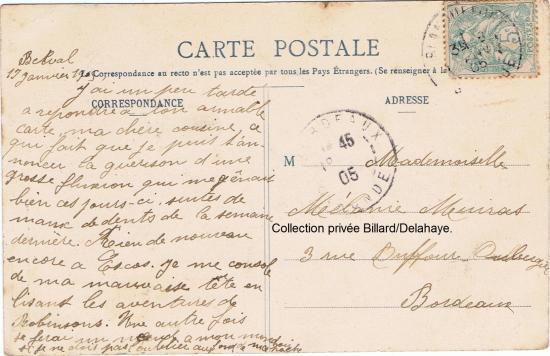 CARTE POSTALE
La Correspondance au recto n'est pas acceptée par tous les Pays Étrangers. (Se renseigner à la
CORRESPONDANCE
ADRESSE
Belval
17 Janvier 1905
J'ai un peu tardé
a repondre a ton aimable
carte, ma chère cousine, ce
qui fait que je puis t'an-
noncer la guerison d'une
grosse fluxion qui me gênait
bien ces jours-ci, suites de
maux de dents de la semaine
dernière. Rien de nouveau
encore a Escos. Je me console
de ma mauvaise tête en
lisant les aventures de
Robinsons. Une autre fois
je ferai un
je ne dois pas oublier
M
Mademoiselle
Mélanie Meuras
3 rue Duffour Dubergier
Bordeaux
BORDEAUX
45
05
GIRONDE
Collection privée Billard/Delahaye.